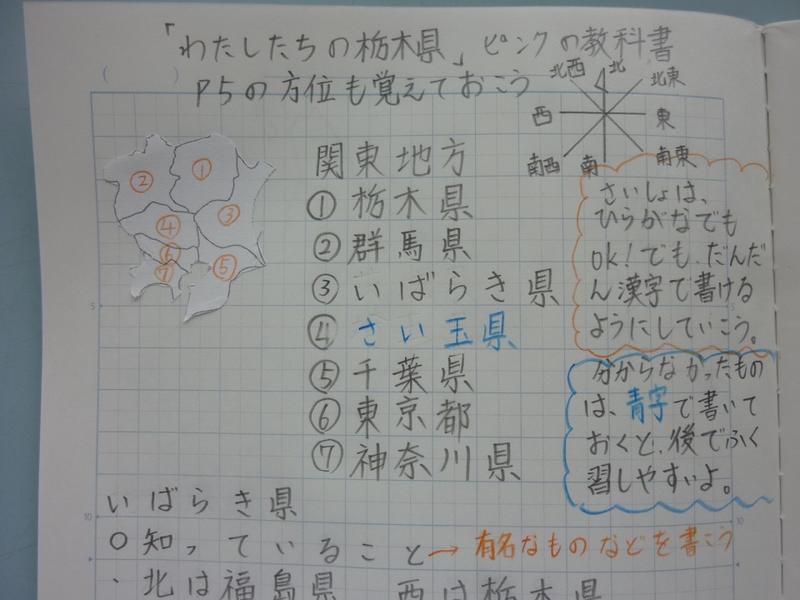 「わたしたちの栃木県」ピンクの教科書
P5の方位も覚えておこう
北西 北 北東
西 東
南西 南 南東
② ① ③ ④ ⑥ ⑦ ⑤
関東地方
①栃木県
②群馬県
③いばらき県
④さい玉県
⑤千葉県
⑥東京都
⑦神奈川県
さいしょは、
ひらがなでも
OK!でも、だんだ
ん漢字で書ける
ようにしていこう。
分からなかったもの
は、青字で書いて
おくと、後でふく
習しやすいよ。
5
10
10
いばらき県
○知っていること→有名なものなどを書こう
・北は福島県 西は栃木県